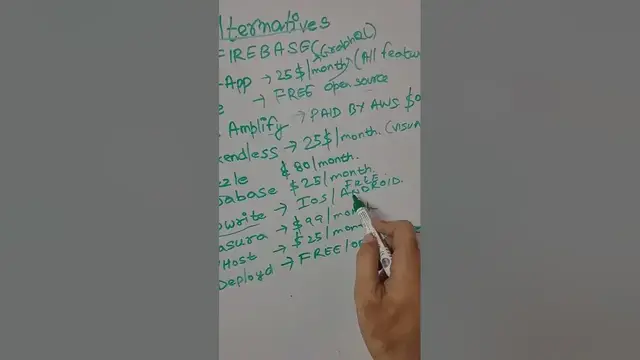 lternatives
FIREBASE (GraphQL)
-App → 25$/month (All featur
→ FREE open source
Amplify → PAID BY AWS $0
kendless → 25$/month. (visua
zzle $80/month.
pabase $25/month.
FREE
owrite → IOS/ANDROID.
asura → $99/mont
Host → $25/mont
Deployd → FREE/OP